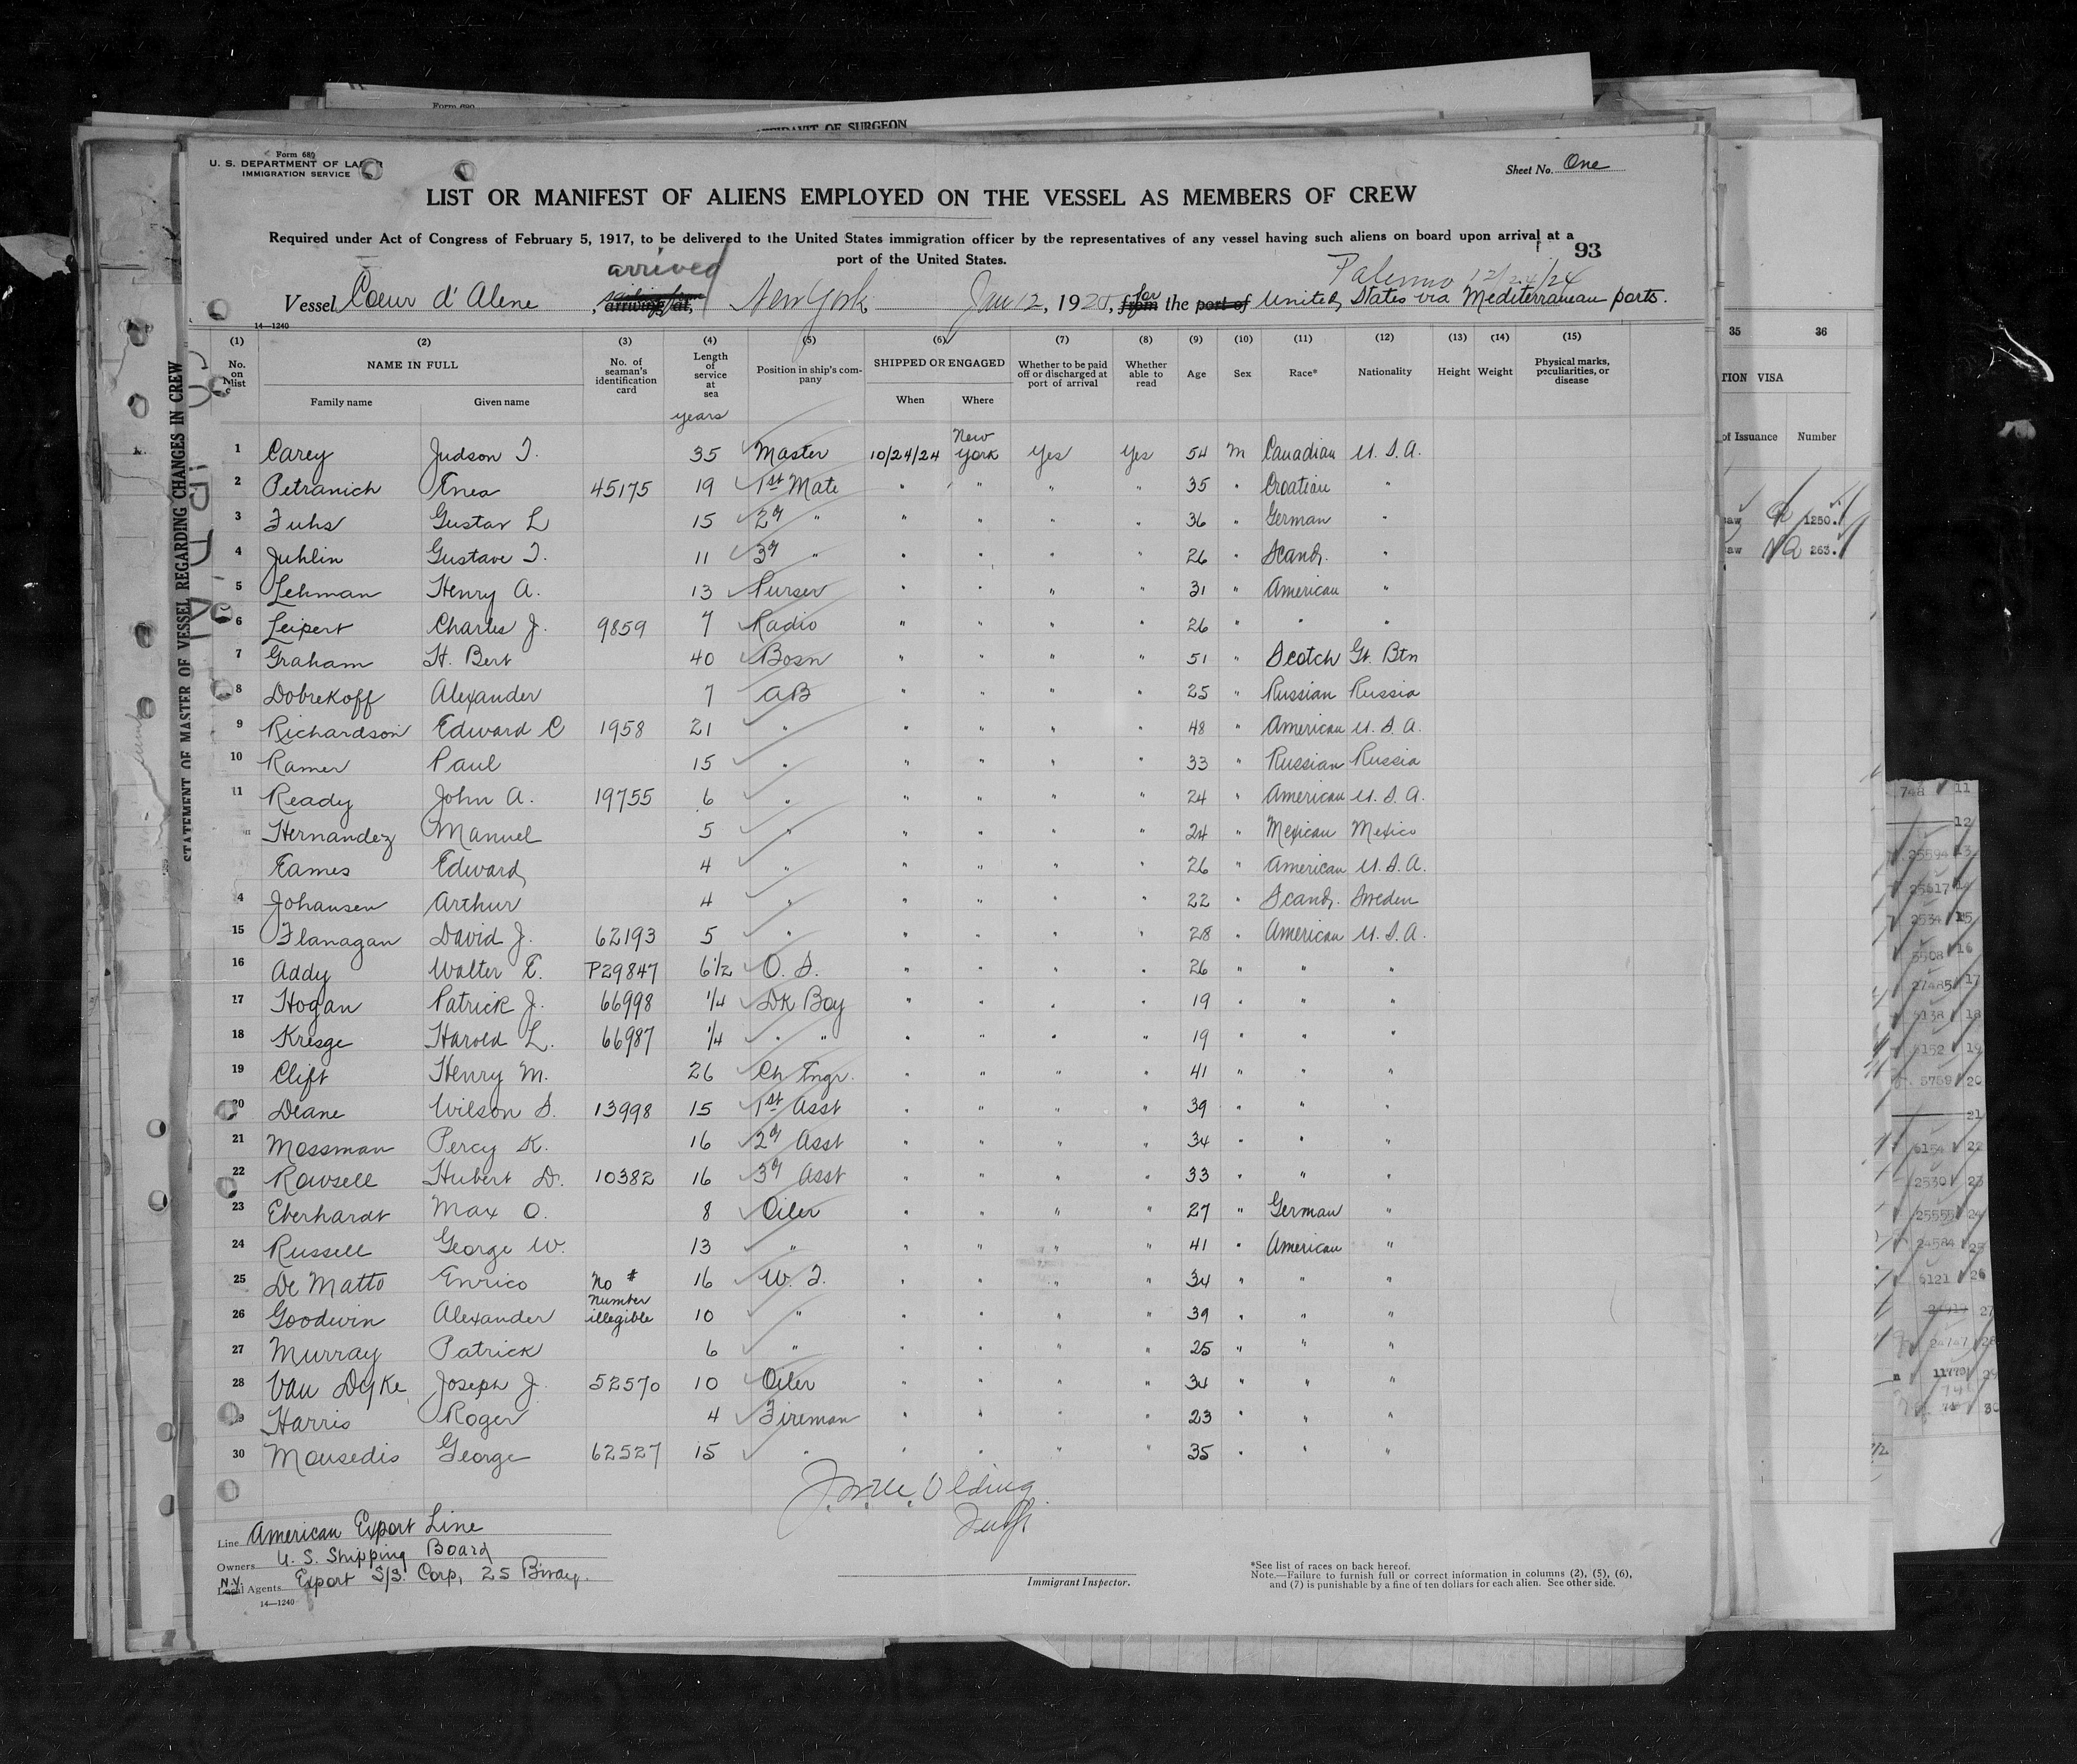 Form 680
AFFIDAVIT OF SURGEON
Form 680
U. S. DEPARTMENT OF LABOR
IMMIGRATION SERVICE
Sheet No. One
LIST OR MANIFEST OF ALIENS EMPLOYED ON THE VESSEL AS MEMBERS OF CREW
Required under Act of Congress of February 5, 1917, to be delivered to the United States immigration officer by the representatives of any vessel having such aliens on board upon arrival at a
port of the United States.
93
arrived
Palermo 12/24/24
Vessel Coeur d'Alene, arriving at, New York Jan 12, 1925, from for the port of United States via Mediterranean ports.
14—1240
(1) (2) (3) (4) (5) (6) (7) (8) (9) (10) (11) (12) (13) (14) (15)
No. on list NAME IN FULL No. of seaman's identification card Length of service at sea Position in ship's company SHIPPED OR ENGAGED Whether to be paid off or discharged at port of arrival Whether able to read Age Sex Race* Nationality Height Weight Physical marks, peculiarities, or disease
Family name Given name When Where
years
1 Carey Judson T. 35 Master 10/24/24 New York Yes Yes 54 M Canadian U.S.A.
2 Petranich Enea 45175 19 1st Mate " " " " 35 " Croatian "
3 Fuhs Gustav L 15 2d " " " " " 36 " German "
4 Juhlin Gustave T. 11 3d " " " " " 26 " Scand. "
5 Lehman Henry A. 13 Purser " " " " 31 " American "
6 Leipert Charles J. 9859 7 Radio " " " " 26 " " "
7 Graham H. Bert 40 Bosn " " " " 51 " Scotch Gt. Btn
8 Dobrekoff Alexander 7 AB " " " " 25 " Russian Russia
9 Richardson Edward C 1958 21 " " " " " 48 " American U.S.A.
10 Ramer Paul 15 " " " " " 33 " Russian Russia
11 Ready John A. 19755 6 " " " " " 24 " American U.S.A.
Hernandez Manuel 5 " " " " " 24 " Mexican Mexico
Eames Edward 4 " " " " " 26 " American U.S.A.
4 Johansen Arthur 4 " " " " " 22 " Scand. Sweden
15 Flanagan David J. 62193 5 " " " " " 28 " American U.S.A.
16 Addy Walter E. P29847 6 1/2 O. S. " " " " 26 " " "
17 Hogan Patrick J. 66998 1/4 Dk Boy " " " " 19 " " "
18 Kresge Harold L. 66987 1/4 " " " " " " 19 " " "
19 Clift Henry M. 26 Ch Engr. " " " " 41 " " "
20 Deane Wilson S. 13998 15 1st Asst " " " " 39 " " "
21 Mossman Percy K. 16 2d Asst " " " " 34 " " "
22 Rowsell Hubert D. 10382 16 3d Asst " " " " 33 " " "
23 Eberhardt Max O. 8 Oiler " " " " 27 " German "
24 Russell George W. 13 " " " " " 41 " American "
25 De Matto Enrico No # 16 W. T. " " " " 34 " " "
26 Goodwin Alexander Number illegible 10 " " " " " 39 " " "
27 Murray Patrick 6 " " " " " 25 " " "
28 Van Dyke Joseph J. 52570 10 Oiler " " " " 34 " " "
29 Harris Roger 4 Fireman " " " " 23 " " "
30 Mousedis George 62527 15 " " " " " 35 " " "
Line American Export Line
Owners U. S. Shipping Board
N.Y.
Local Agents Export S/S. Corp, 25 Bway.
14—1240
Immigrant Inspector.
*See list of races on back hereof.
Note.—Failure to furnish full or correct information in columns (2), (5), (6),
and (7) is punishable by a fine of ten dollars for each alien. See other side.
STATEMENT OF MASTER OF VESSEL REGARDING CHANGES IN CREW
35 36
TION VISA
of Issuance Number
1250.
263.